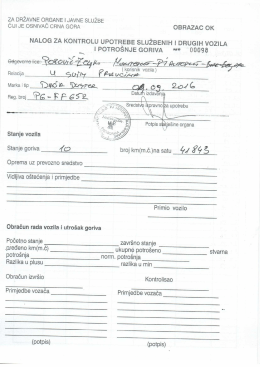 ZA DRŽAVNE ORGANE I JAVNE SLUŽBE
ČIJI JE OSNIVAČ CRNA GORA
OBRAZAC OK
NALOG ZA KONTROLU UPOTREBE SLUŽBENIH I DRUGIH VOZILA
I POTROŠNJE GORIVA 00098
Odgovorno lice
( korisnik vozila )
Relacija U SVIM PRAVCIMA
Marka i tip DACIA DUSTER 09. 2016
Datum izdavanja
Reg. broj PG-FF652
Potpis starješine organa
Stanje vozila
Stanje goriva 10 broj km(m.č)na satu 41843
Oprema uz prevozno sredstvo
Vidljiva oštećenja i primjedbe
Primio vozilo
Obračun rada vozila i utrošak goriva
Početno stanje završno stanje
pređeno km(m.č) ukupna potrošeno stvarna
potrošnja norm. potrošnja
Razlika u plusu razlika u min
Obračun izvršio Kontrolisao
Primjedbe vozača Primjedbe vozača
(potpis) (potpis)